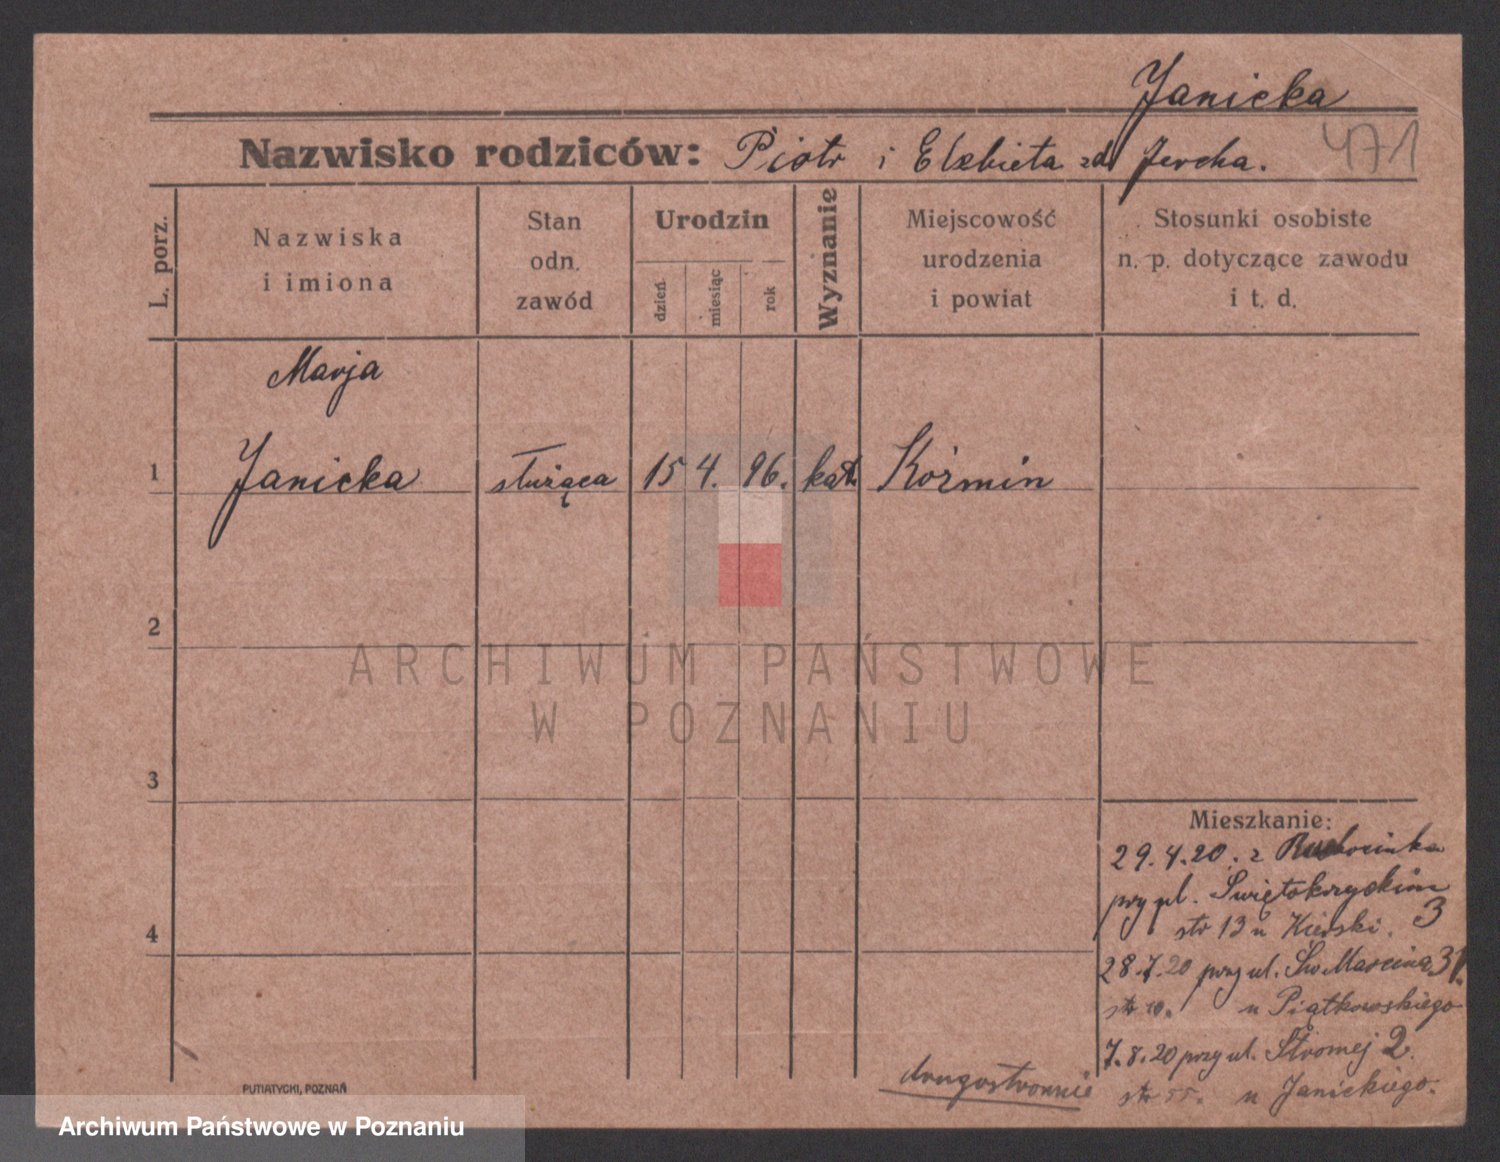 Janicka
Nazwisko rodziców: Piotr i Elżbieta zd. Jercha. 471
L. porz.
Nazwiska
i imiona
Stan
odn.
zawód
Urodzin
dzień
miesiąc
rok
Wyznanie
Miejscowość
urodzenia
i powiat
Stosunki osobiste
n. p. dotyczące zawodu
i t. d.
Marja
1 Janicka służąca 15 4. 96. kat. Koźmin
2
ARCHIWUM PAŃSTWOWE
W POZNANIU
3
Mieszkanie:
29.4.20. z
przy pl. Świętokrzyskim 3
str 13 u Kierski.
4
28.7.20 przy ul. Św Marcina 31.
str 10. u Piątkowskiego
7.8.20 przy ul. Stromej 2.
str 55. u Janickiego.
drugostronnie
PUTIATYCKI, POZNAŃ
Archiwum Państwowe w Poznaniu